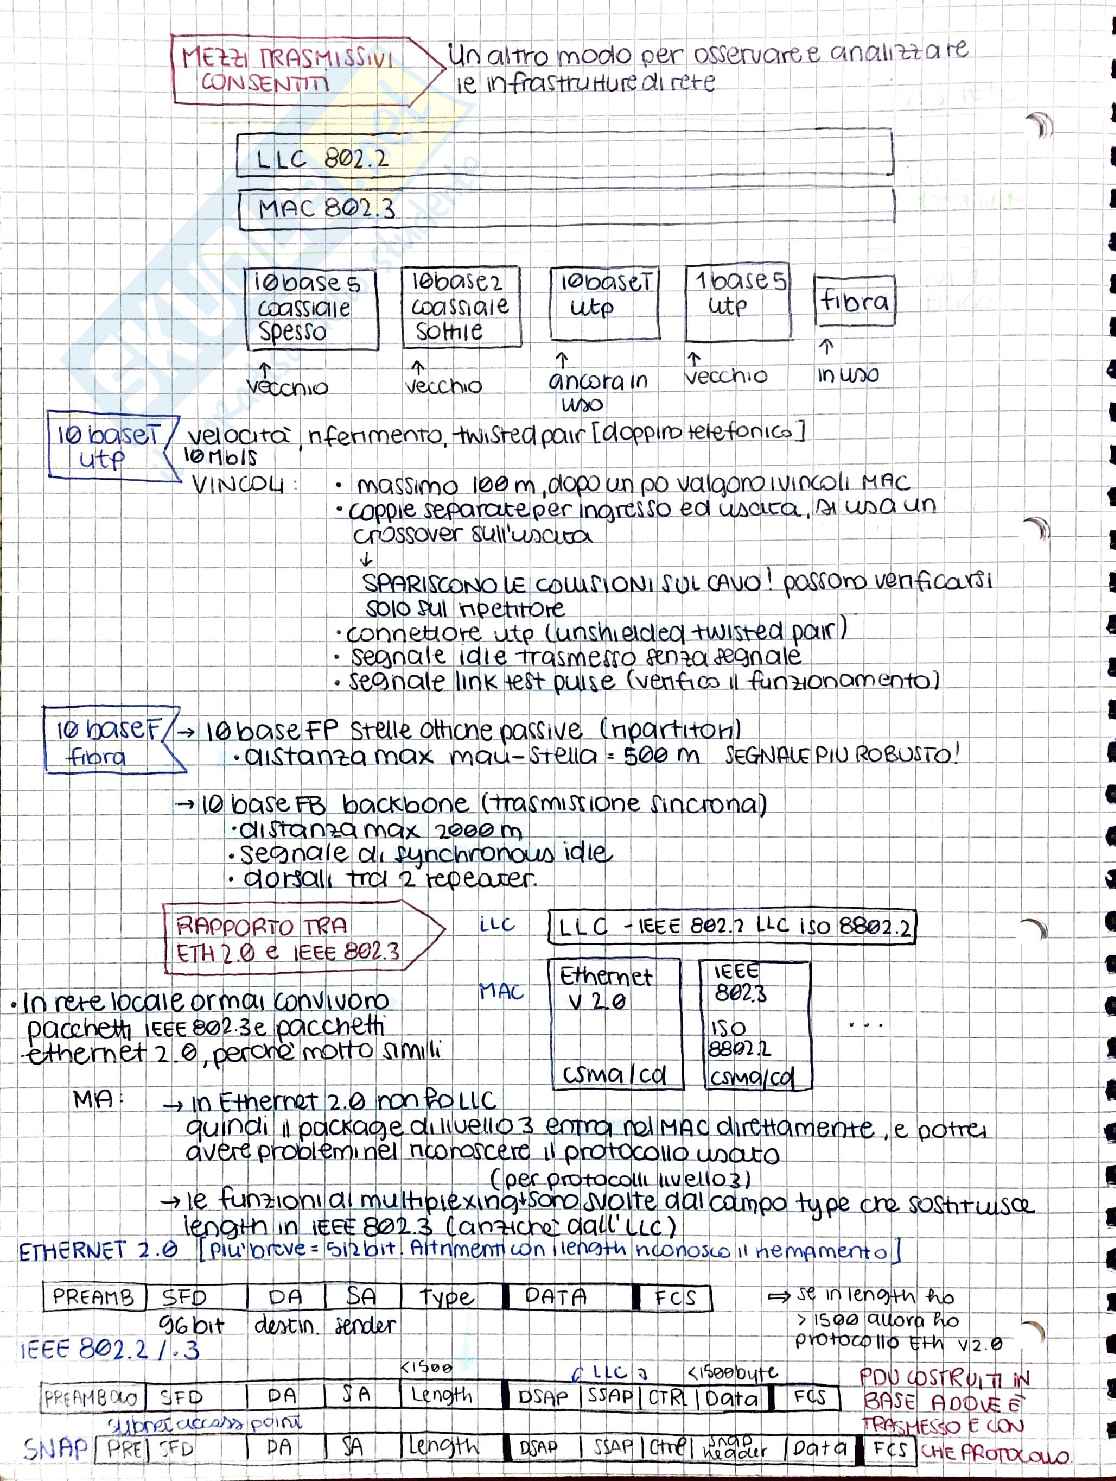 MEZZI TRASMISSIVI
CONSENTITI
Un altro modo per osservare e analizzare
le infrastrutture di rete
LLC 802.2
MAC 802.3
10base5
coassiale
spesso
10base2
coassiale
sottile
10baseT
utp
1base5
utp
fibra
↑ vecchio
↑ vecchio
↑ ancora in
uso
↑ vecchio
↑ in uso
10baseT
utp
velocità, riferimento, twisted pair [doppino telefonico]
10Mb/s
VINCOLI:
• massimo 100m, dopo un po valgono i vincoli MAC
• coppie separate per ingresso ed uscita, si usa un
crossover sull'uscita
↓
SPARISCONO LE COLLISIONI SUL CAVO! possono verificarsi
solo sul ripetitore
• connettore utp (unshielded twisted pair)
• segnale idle trasmesso senza segnale
• segnale link test pulse (verifico il funzionamento)
10baseF
fibra
→ 10baseFP stelle ottiche passive (ripartitori)
• distanza max mau-stella = 500 m SEGNALE PIU ROBUSTO!
→ 10baseFB backbone (trasmissione sincrona)
• distanza max 2000m
• segnale di synchronous idle
• dorsali tra 2 repeater.
RAPPORTO TRA
ETH 2.0 e IEEE 802.3
LLC
LLC - IEEE 802.2 LLC ISO 8802.2
MAC
Ethernet
V 2.0
csma/cd
IEEE
802.3
ISO
8802.2
csma/cd
...
• In rete locale ormai convivono
pacchetti IEEE 802.3 e pacchetti
ethernet 2.0, perché molto simili
MA:
→ in Ethernet 2.0 non ho LLC
quindi il package di livello 3 entra nel MAC direttamente, e potrei
avere problemi nel riconoscere il protocollo usato
(per protocolli livello 3)
→ le funzioni di multiplexing sono svolte dal campo type che sostituisce
length in IEEE 802.3 (anziché dall'LLC)
ETHERNET 2.0 [più breve = 512bit. Altrimenti con length riconosco il riempimento]
PREAMB SFD DA SA Type DATA FCS
96bit destin. sender
⇒ se in length ho
> 1500 allora ho
protocollo Eth v2.0
IEEE 802.2/.3
<1500
LLC
<1500byte
PREAMBOLO SFD DA SA Length DSAP SSAP CTRL Data FCS
PDU COSTRUITI IN
BASE A DOVE È
TRASMESSO E CON
CHE PROTOCOLLO
subnet access point
SNAP PRE SFD DA SA Length DSAP SSAP Ctrl snap
header Data FCS